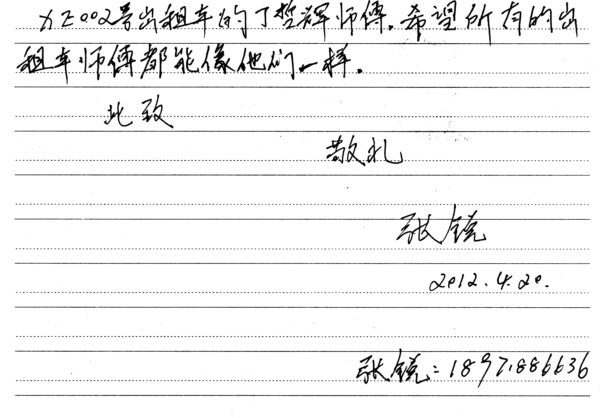 XZ002号出租车的丁哲辉师傅.希望所有的出
租车师傅都能像他们一样.
此致
敬礼
张镜
2012.4.20.
张镜:1897.886636